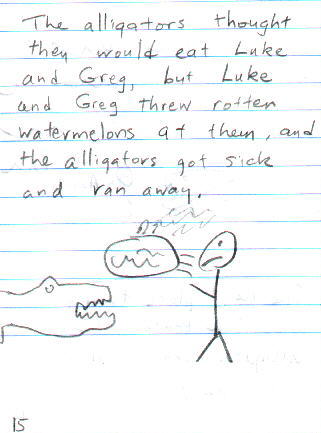 The alligators thought
they would eat Luke
and Greg, but Luke
and Greg threw rotten
watermelons at them, and
the alligators got sick
and ran away.
15